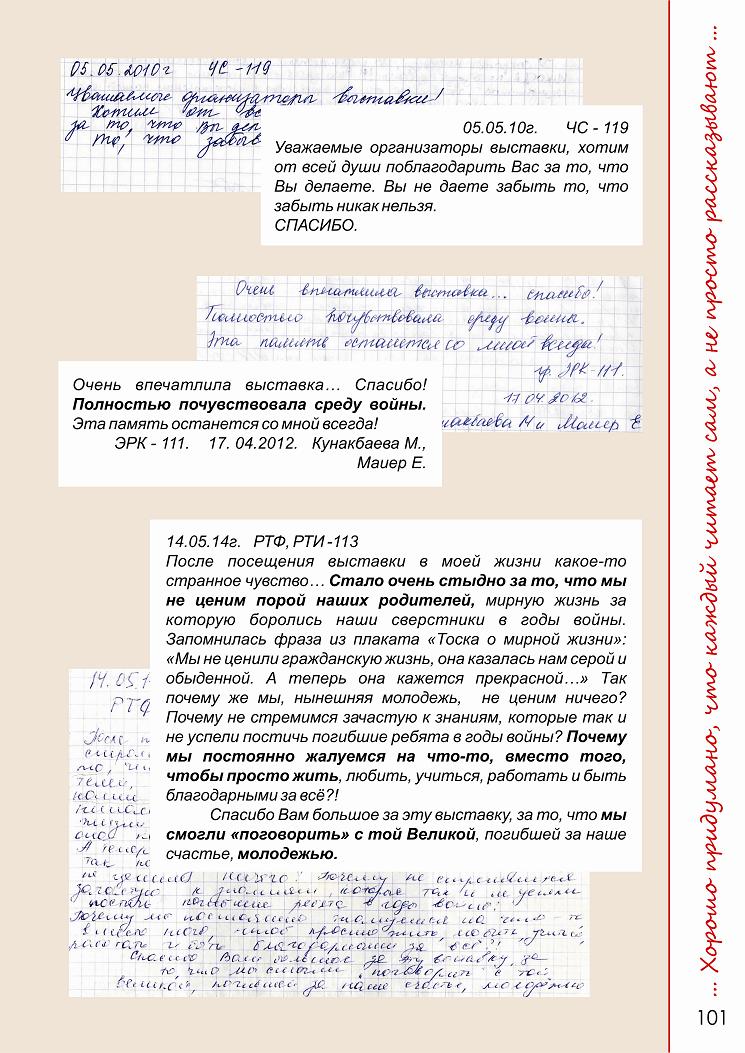 05.05.2010г ЧС-119
Уважаемые организаторы выставки!
Хотим от вс
за то, что Вы дел
то, что забыв
05.05.10г. ЧС - 119
Уважаемые организаторы выставки, хотим
от всей души поблагодарить Вас за то, что
Вы делаете. Вы не даете забыть то, что
забыть никак нельзя.
СПАСИБО.
Очень впечатлила выставка... спасибо!
Полностью почувствовала среду войны.
Эта память останется со мной всегда!
гр. ЭРК-111.
17.04.2012.
накбаева М и Маиер Е
Очень впечатлила выставка… Спасибо!
Полностью почувствовала среду войны.
Эта память останется со мной всегда!
ЭРК - 111. 17. 04.2012. Кунакбаева М.,
Маиер Е.
14.05.14г. РТФ, РТИ -113
После посещения выставки в моей жизни какое-то
странное чувство… Стало очень стыдно за то, что мы
не ценим порой наших родителей, мирную жизнь за
которую боролись наши сверстники в годы войны.
Запомнилась фраза из плаката «Тоска о мирной жизни»:
«Мы не ценили гражданскую жизнь, она казалась нам серой и
обыденной. А теперь она кажется прекрасной…» Так
почему же мы, нынешняя молодежь, не ценим ничего?
Почему не стремимся зачастую к знаниям, которые так и
не успели постичь погибшие ребята в годы войны? Почему
мы постоянно жалуемся на что-то, вместо того,
чтобы просто жить, любить, учиться, работать и быть
благодарными за всё?!
Спасибо Вам большое за эту выставку, за то, что мы
смогли «поговорить» с той Великой, погибшей за наше
счастье, молодежью.
14.05.1
РТФ
После п
то, чт
телей,
жизни
она к
А тепер
так по
не ценим ничего? Почему не стремимся
зачастую к знаниям, которые так и не успели
постичь погибшие ребята в годы войны?
Почему мы постоянно жалуемся на что-то
вместо того, чтоб просто жить, любить, учит,
работать и быть благодарными за всё?!
Спасибо Вам большое за эту выставку, за
то, что мы смогли "поговорить" с той
великой, погибшей за наше счастье, молодёжью
... Хорошо придумано, что каждый читает сам, а не просто рассказывают ...
101